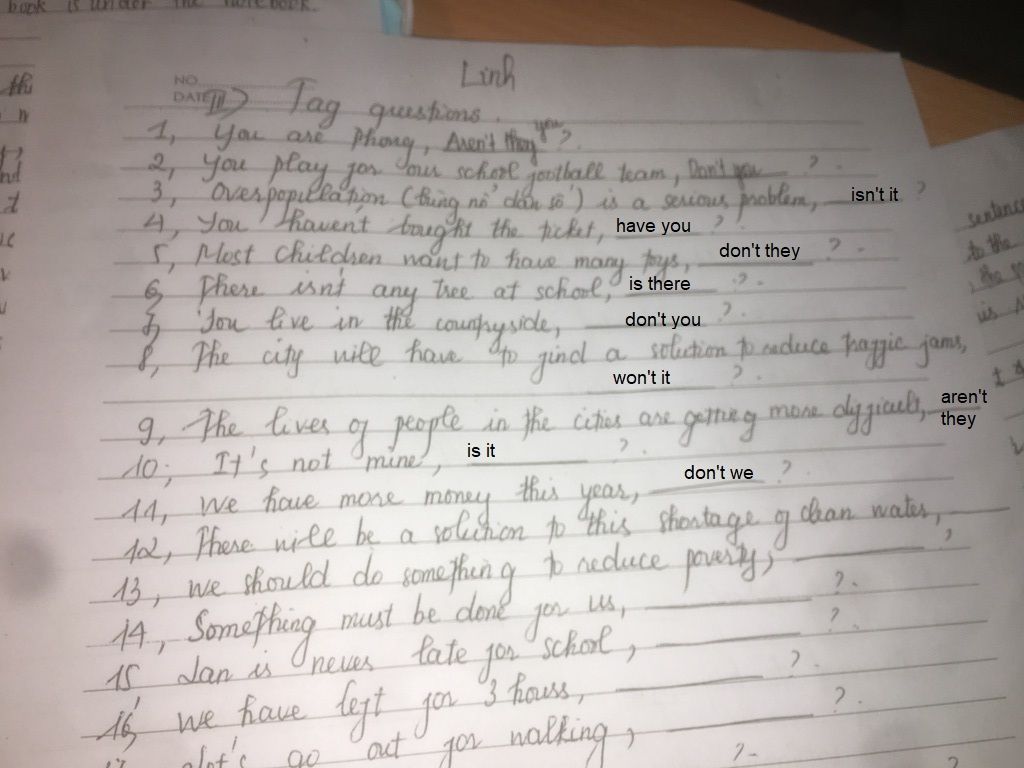 book is under the notebook.
Linh
NO.
DATE II) Tag questions.
1, You are Phong, Aren't they you ?
2, You play for our school football team, Don't you ?
3, Overpopulation (bùng nổ dân số) is a serious problem, isn't it ?
4, You haven't bought the ticket, have you ?
5, Most children want to have many toys, don't they ?
6, There isn't any tree at school, is there ?
7, You live in the countryside, don't you ?
8, The city will have to find a solution to reduce traffic jams,
won't it ?
9, The lives of people in the cities are getting more difficult, aren't they
10, It's not mine, is it ?
11, We have more money this year, don't we ?
12, There will be a solution to this shortage of clean water,
13, we should do something to reduce poverty, ?
14, Something must be done for us, ?
15 Lan is never late for school, ?
16, We have left for 3 hours, ?
17 let's go out for walking, ?
sentence
to the
is